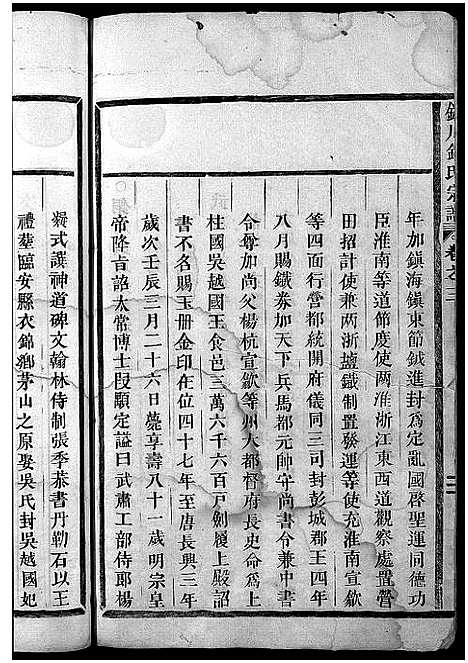 錢氏宗譜 卷之二
年加鎮海鎮東節鉞進封爲定亂國啓聖運同德功
臣淮南等道節度使兩淮浙江東西道觀察處置營
田招討使兼兩浙塩鐵制置發運等使充淮南宣歙
等四面行營都統開府儀同三司封彭城郡王四年
八月賜鐵券加天下兵馬都元帥守尚書令兼中書
令尊加尚父楊杭宣歙等州大都督府長史命爲上
柱國吳越國王食邑三萬六千六百戸劍履上殿詔
書不名賜玉册金印在位四十七年至唐長興三年
歲次壬辰三月二十六日薨享壽八十一歲明宗皇
帝降旨詔太常博士段顒定謚曰武肅工部侍郎楊
凝式譔神道碑文翰林侍制張季恭書丹勒石以王
禮塟臨安縣衣錦鄉茅山之原娶吳氏封吳越國妃